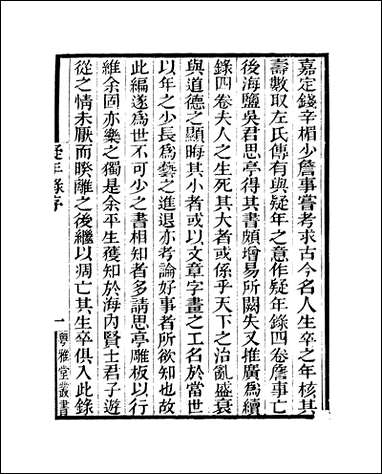 嘉定錢辛楣少詹事嘗考求古今名人生卒之年核其
壽數取左氏傳有與疑年之意作疑年錄四卷詹事亡
後海鹽吳君思亭得其書頗增易所闕失又推廣為續
錄四卷夫人之生死其大者或係乎天下之治亂盛衰
與道德之顯晦其小者或以文章字畫之工名於當世
以年之少長為藝之進退亦考論好事者所欲知也故
此編遂為世不可少之書相知者多請思亭雕板以行
維余固亦樂之獨是余平生獲知於海內賢士君子遊
從之情未厭而暌離之後繼以凋亡其生卒俱入此錄
疑年錄序
一
粵雅堂叢書